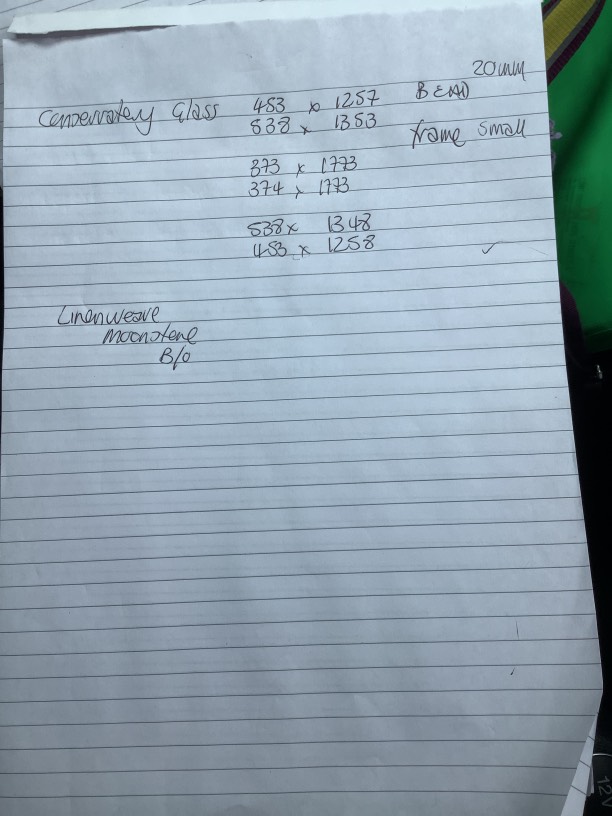 20mm
Conservatory Glass 453 x 1257 BEAD
538 x 1353 frame small
373 x 1773
374 x 1773
538 x 1348
453 x 1258
Linenweave
Moonstone
B/O
12V